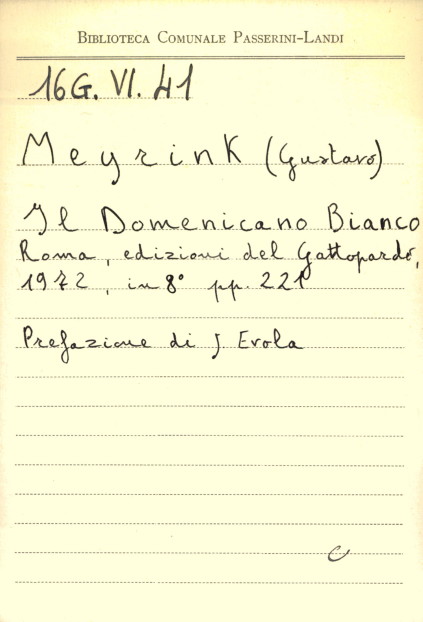 BIBLIOTECA COMUNALE PASSERINI-LANDI
16G. VI. 41
Meyrink (Gustavo)
Il Domenicano Bianco
Roma, edizioni del Gattopardo,
1972, in 8° pp. 221
Prefazione di J. Evola
C